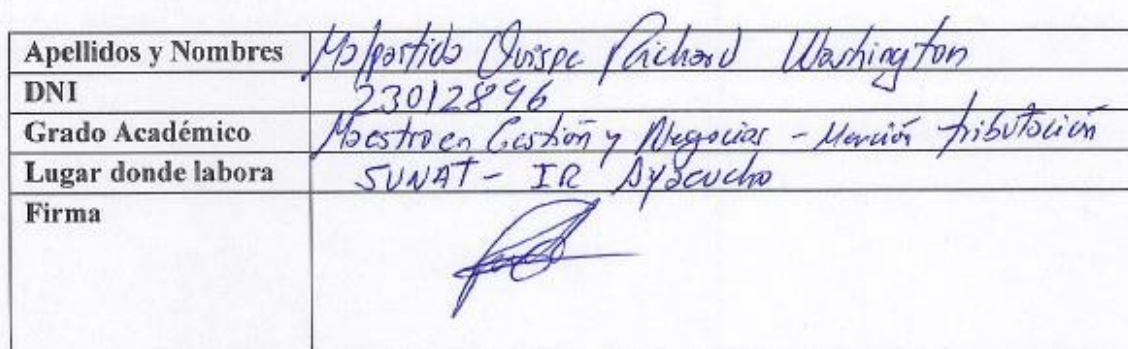 Apellidos y Nombres Malpartido Quispe Richard Washington
DNI 23012896
Grado Académico Maestro en Gestión y Negocios - Mención tributación
Lugar donde labora SUNAT - IR Ayacucho
Firma